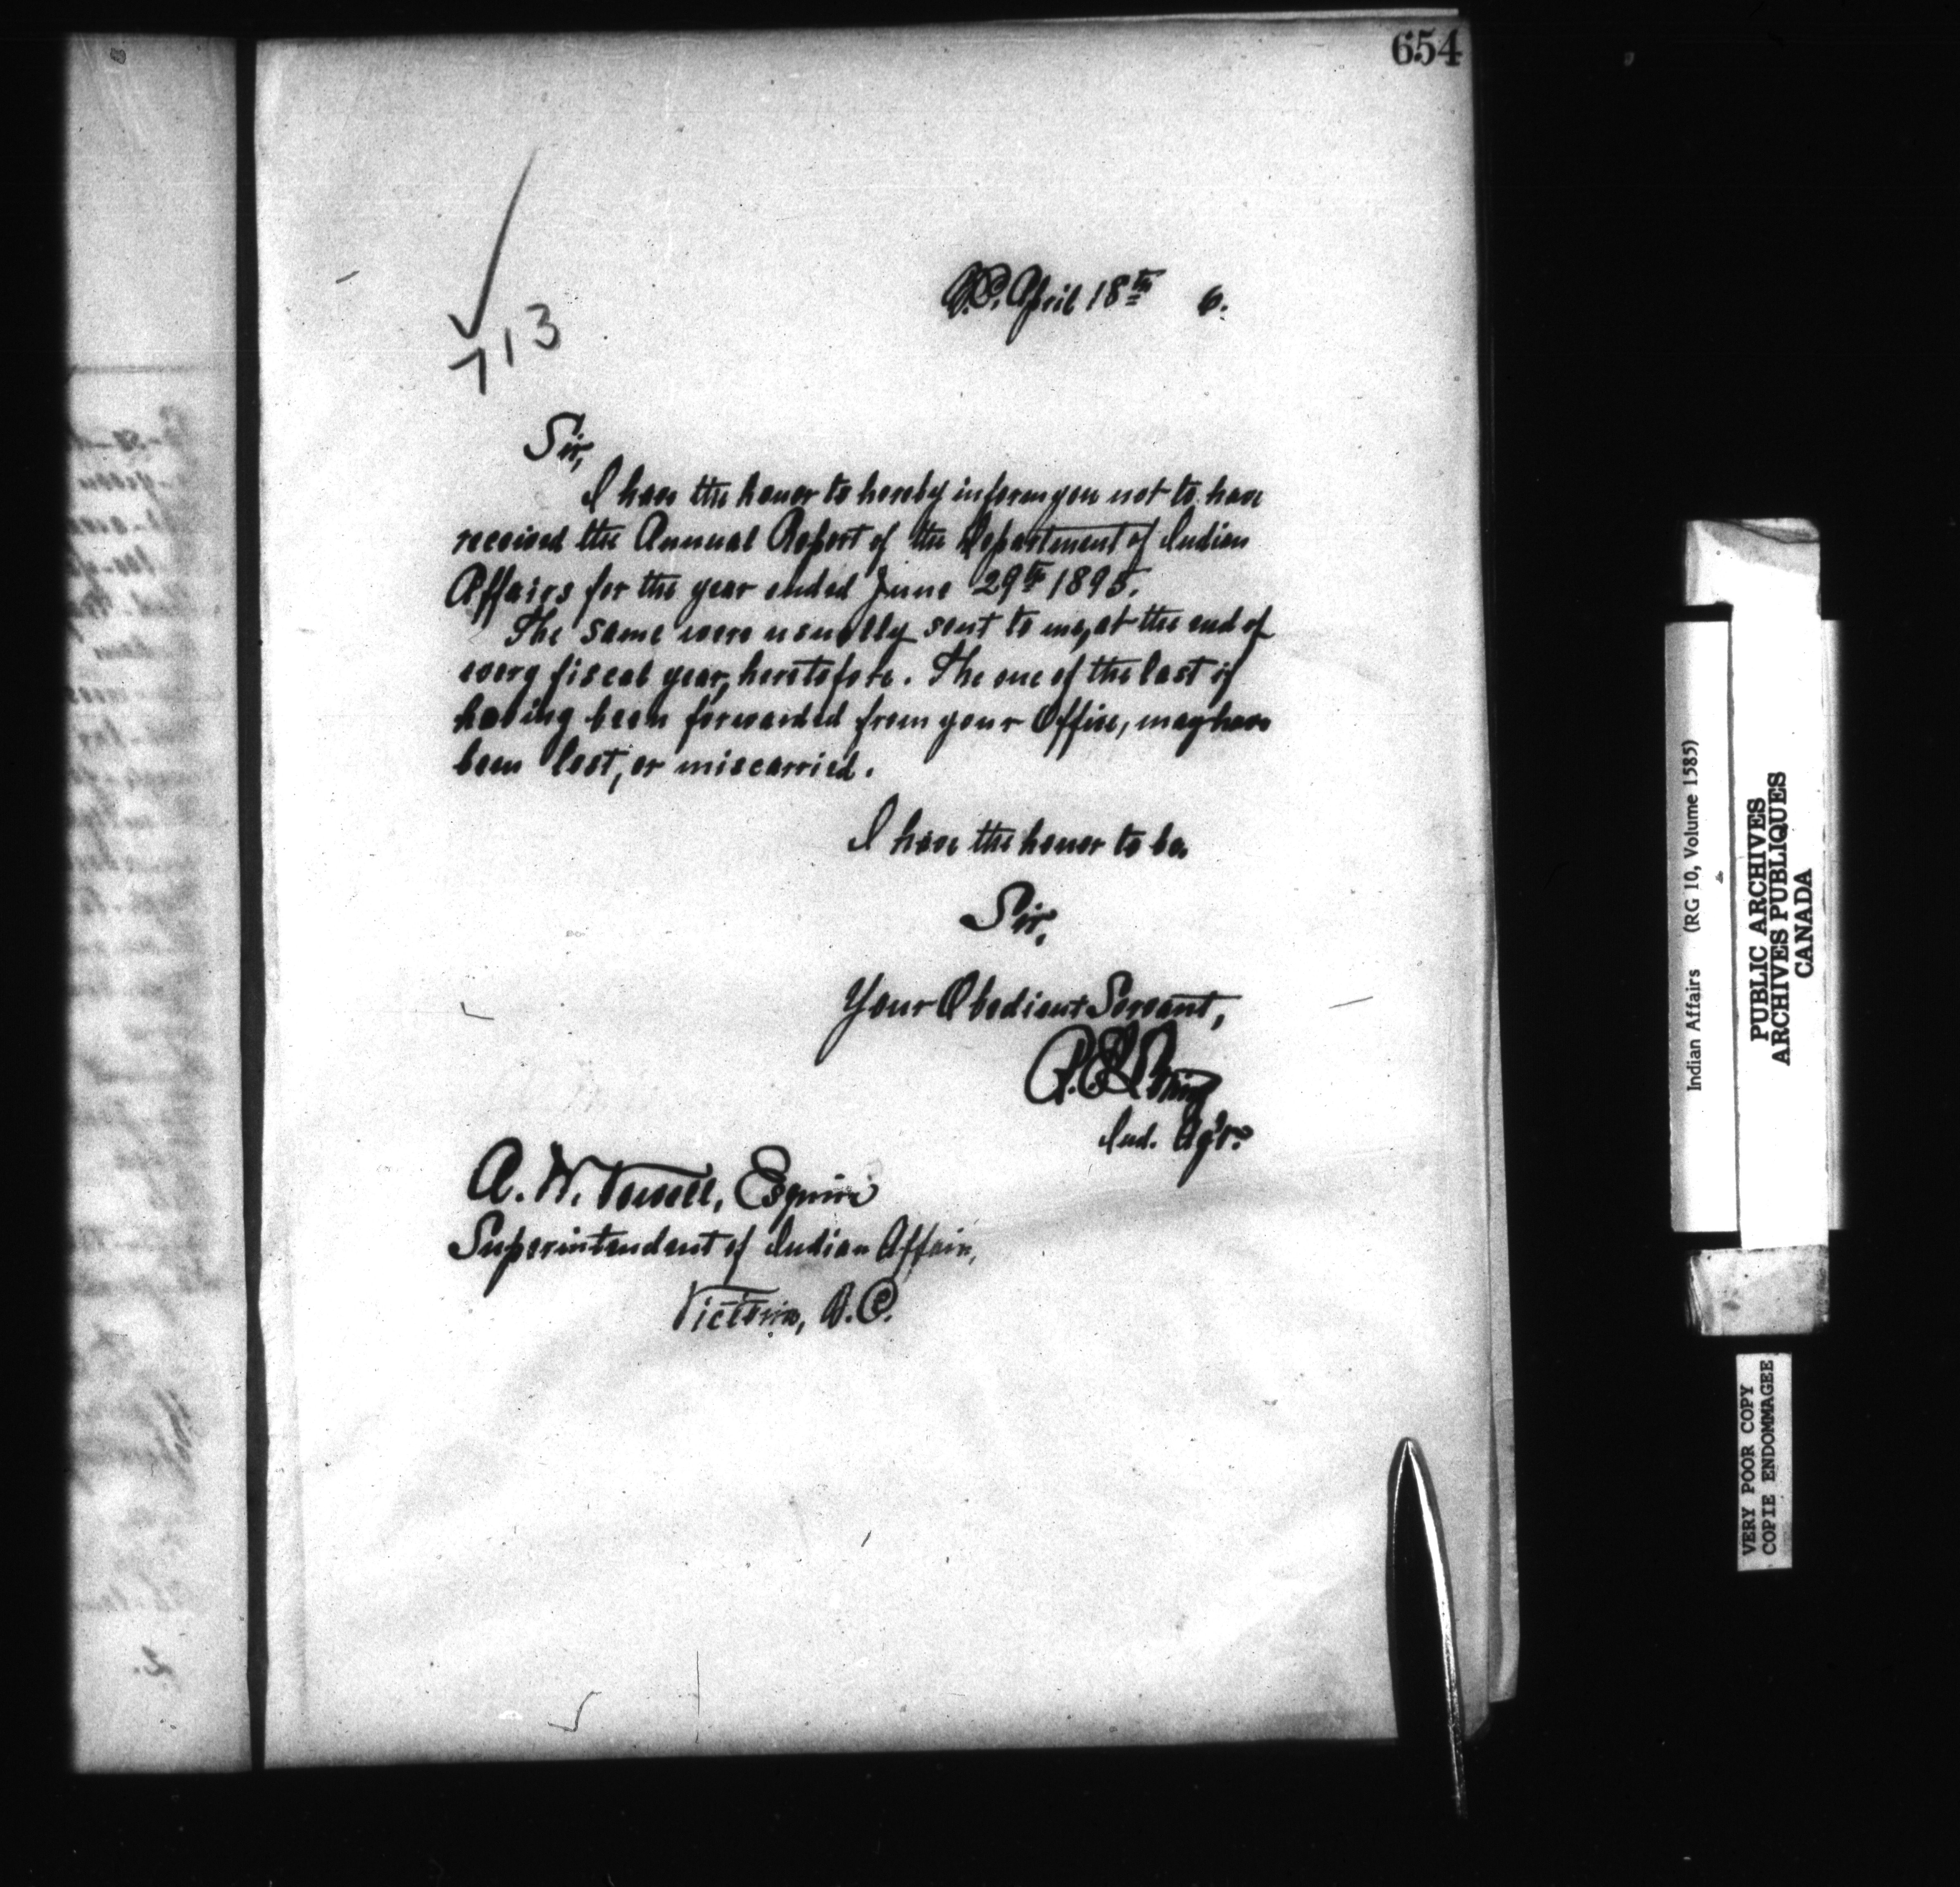 654
713
B.C. April 18th 6.
Sir,
I have the honor to hereby inform you not to have
received the Annual Report of the Department of Indian
Affairs for the year ended June 29th 1895.
The same were usually sent to me, at the end of
every fiscal year, heretofore. The one of the last if
having been forwarded from your Office, may have
been lost, or miscarried.
I have the honor to be
Sir,
Your Obedient Servant,
R.E. Loring
Ind. Agt.
A. W. Vowell, Esquire
Superintendent of Indian Affairs,
Victoria, B.C.
Indian Affairs (RG 10, Volume 1585)
PUBLIC ARCHIVES
ARCHIVES PUBLIQUES
CANADA
VERY POOR COPY
COPIE ENDOMMAGEE